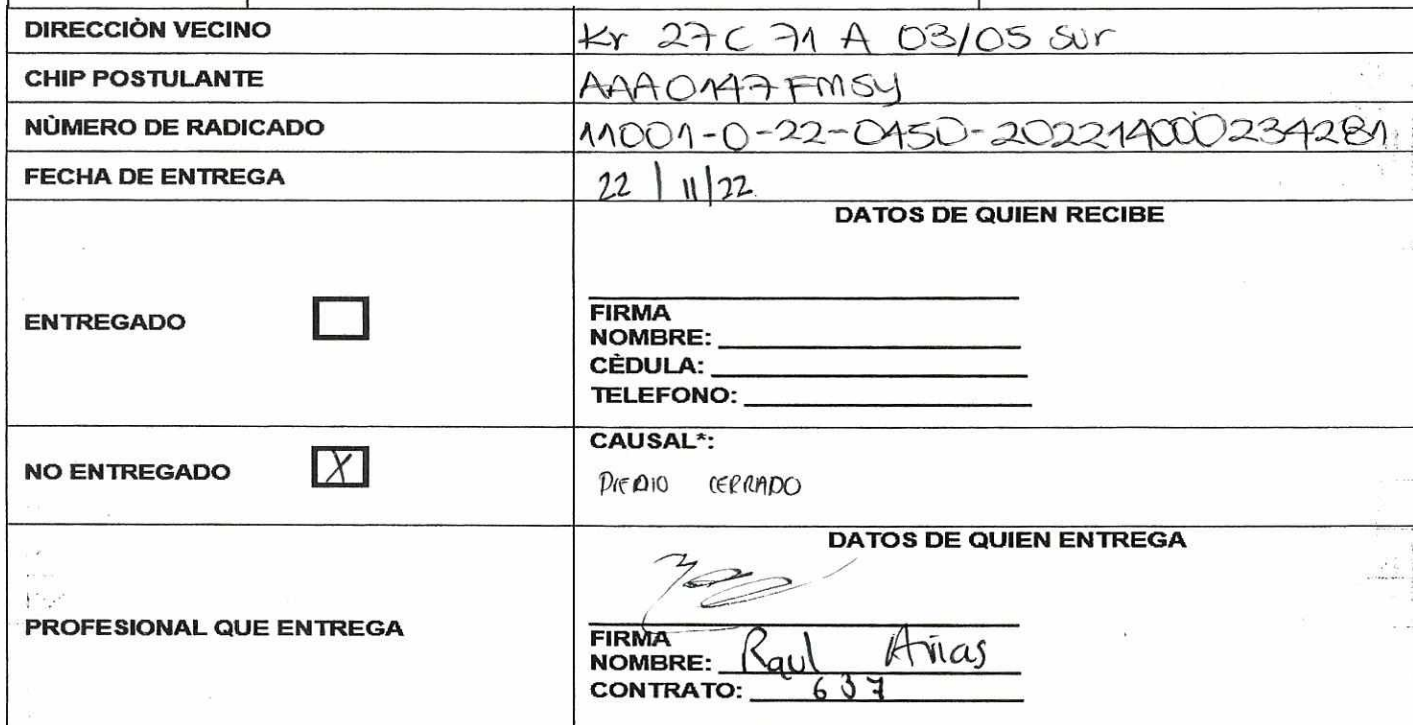 DIRECCIÒN VECINO Kr 27C 71 A 03/05 Sur
CHIP POSTULANTE AAA0147FMSY
NÙMERO DE RADICADO 11001-0-22-0450-20221400234281
FECHA DE ENTREGA 22 | 11 | 22
DATOS DE QUIEN RECIBE
ENTREGADO
FIRMA
NOMBRE:
CÈDULA:
TELEFONO:
NO ENTREGADO X
CAUSAL*:
PREDIO CERRADO
DATOS DE QUIEN ENTREGA
PROFESIONAL QUE ENTREGA
FIRMA
NOMBRE: Raul Arias
CONTRATO: 637